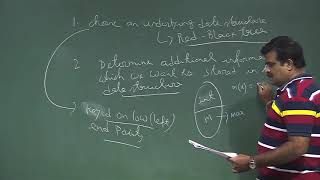 1. choose an underlying data structure
↳ Red-Black trees
2. Determine additional informa
which we want to stored in
data structure
based on low (left)
end Point,
int
M → max
m(x) =